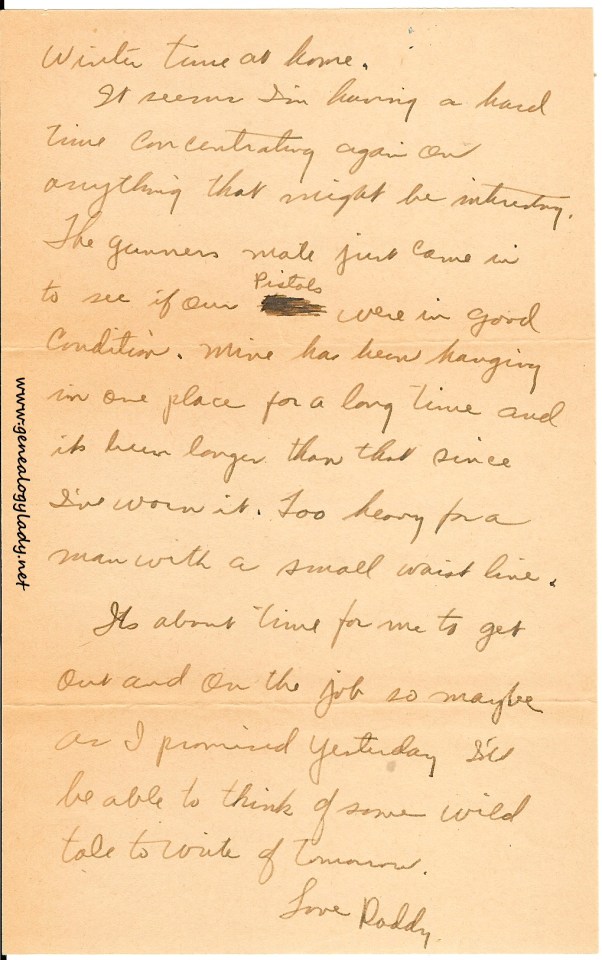 Winter time at home.
It seems I'm having a hard
time concentrating again on
anything that might be interesting.
The gunners mate just came in
to see if our Pistols were in good
Condition. Mine has been hanging
in one place for a long time and
its been longer than that since
I've worn it. Too heavy for a
man with a small waist line.
Its about time for me to get
out and on the job so maybe
as I promised yesterday I'll
be able to think of some wild
tale to write of tomorrow.
Love Daddy.
www.genealogylady.net